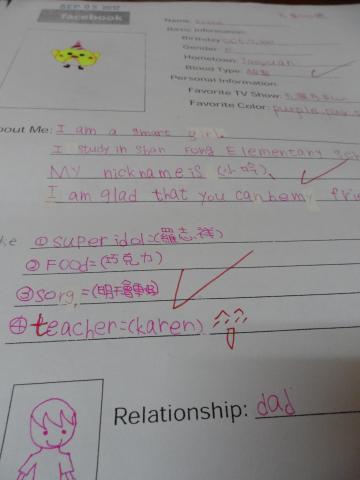 SEP 05 2012
facebook
Name:
Basic Information:
Birthday:
Gender:
Hometown: Taoyuan
Blood Type:
Personal Information:
Favorite TV Show:
Favorite Color: purple,
About Me: I am a smart girl.
I study in Shan Fong Elementary
MY nickname is (小哈).
I am glad that you can be my
①super idol=(羅志祥)
②Food=(巧克力)
③song=(
④teacher=(karen)
Relationship: dad